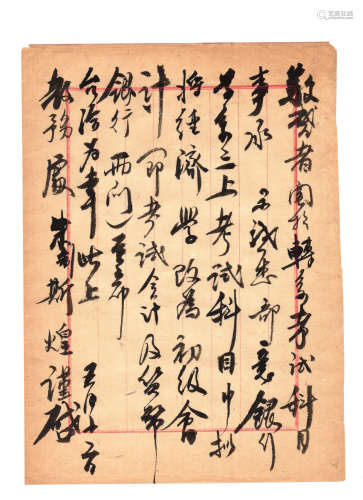 敬啓者關於轉系考試科目
事承 示誠悉部意銀行
系三上考試科目中擬
將經濟學改為初級會
計即考試會計及貨幣
銀行兩門)至希
台洽為幸此上
教務處 朱斯煌謹啟 五月十二日